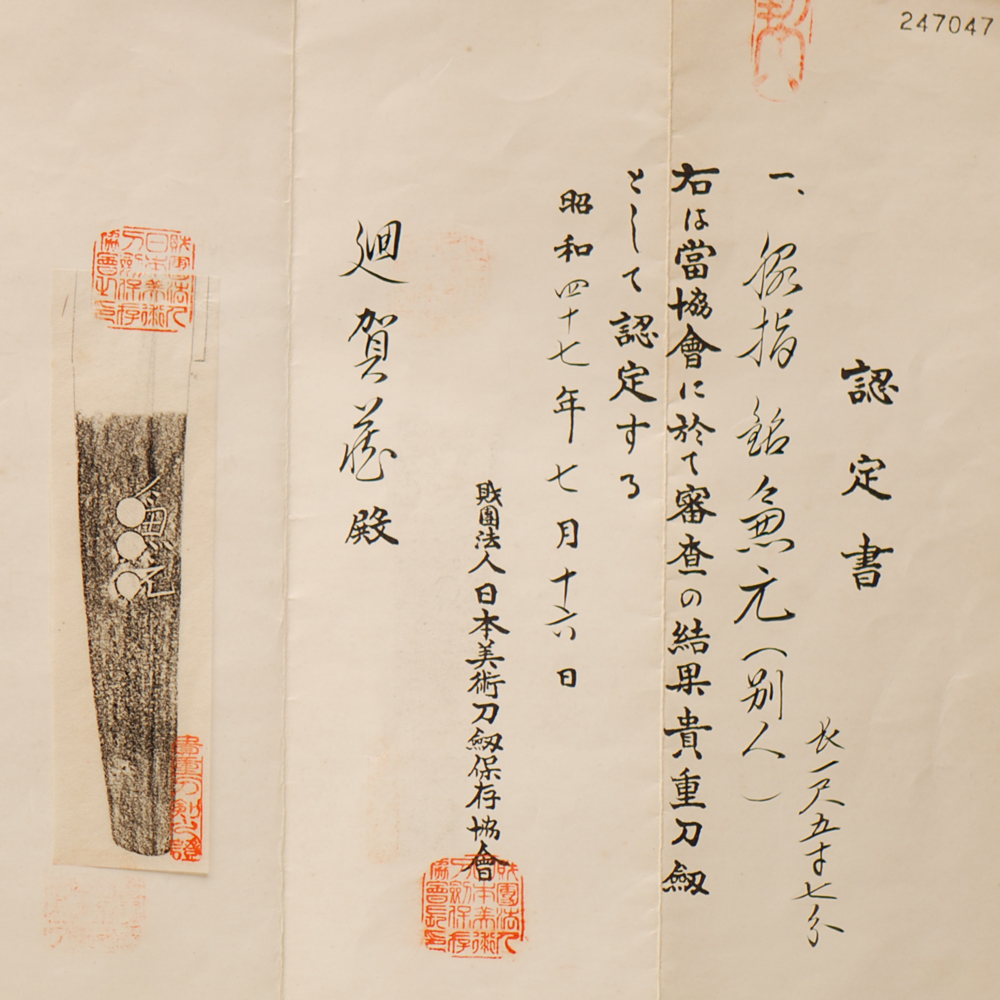 247047
認定書
一、脇指 銘 兼元(別人)
長一尺五寸七分
右は當協會に於て審査の結果貴重刀劔
として認定する
昭和四十七年七月十六日
財團法人日本美術刀劔保存協會
財團法人日本美術刀劍保存協會長之印
殿
財團法人日本美術刀劍保存協會長之印
兼元
貴重刀劍之證